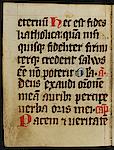 eternũ Hec est fides
katholica: quã nisi
quisqȝ fideliter firmi
terqȝ crediderit saluus
eē nõ poterit Gl̃a. añ
deus exaudi orõnem
meã auribȝ percipe
verba oris mei cap̃
Pacem et veritatē